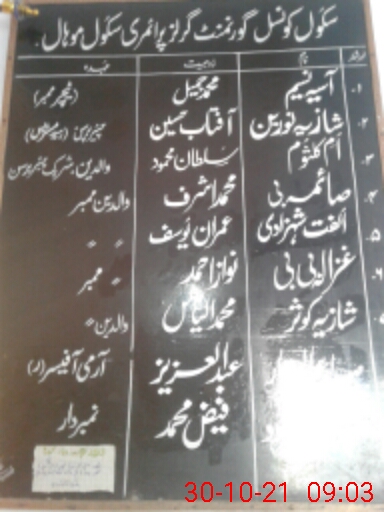 سکول کونسل گورنمنٹ گرلز پرائمری سکول موہال
نمبر شمار نام زوجیت عہدہ
۱. آسیہ نسیم محمد جمیل (ٹیچر ممبر)
۲. شازیہ نورین آفتاب حسین (ہیڈ مسٹریس)
۳. ام کلثوم سلطان محمود والدین شریک چیئرپرسن
۴. صائمہ بی محمد اشرف والدین ممبر
۵. الفت شہزادی عمران یوسف 〃 〃
۶. غزالہ بی بی نواز احمد 〃 ممبر
شازیہ کوثر محمد الیاس والدین 〃
عبدالعزیز آرمی آفیسر (ر)
فیض محمد نمبردار
30-10-21 09:03